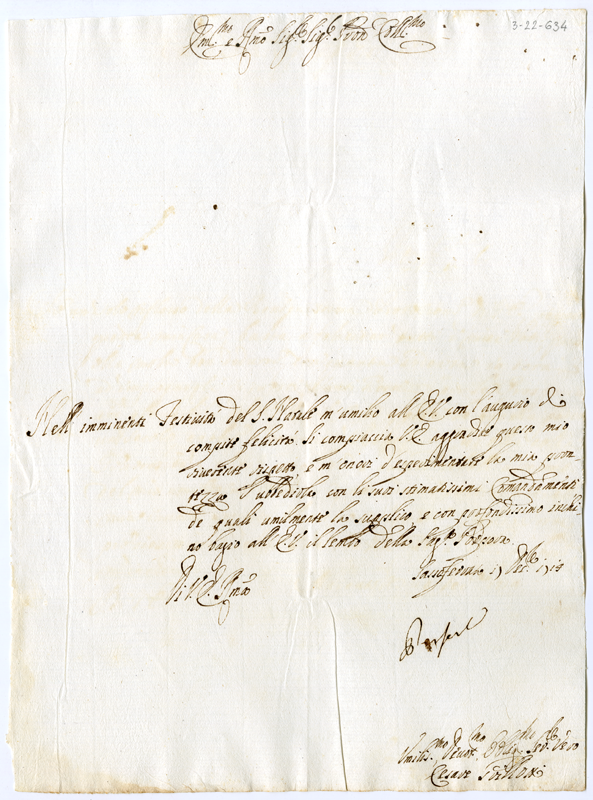 3-22-634
Em.mo e R.mo Sig.r Sig.r Pron Coll.mo
Nell imminenti Festività del S. Natale m'umilio all E.V. con l'augurio di
compite felicità. Si compiaccia V.E. aggradire questo mio
riverente e m'onori d'esperimentare la mia pron
tezza l'ubbedirla con li suoi stimatissimi Comandamenti
de quali umilmente la supplico e con profondissimo inchi
no bagio all E.V. il lembo della Sag.ra Porpora.
Di V.E. R.ma
Dec.bre
Umiliss.mo Devot.mo Obblig.mo Ser. Vero
Cesare